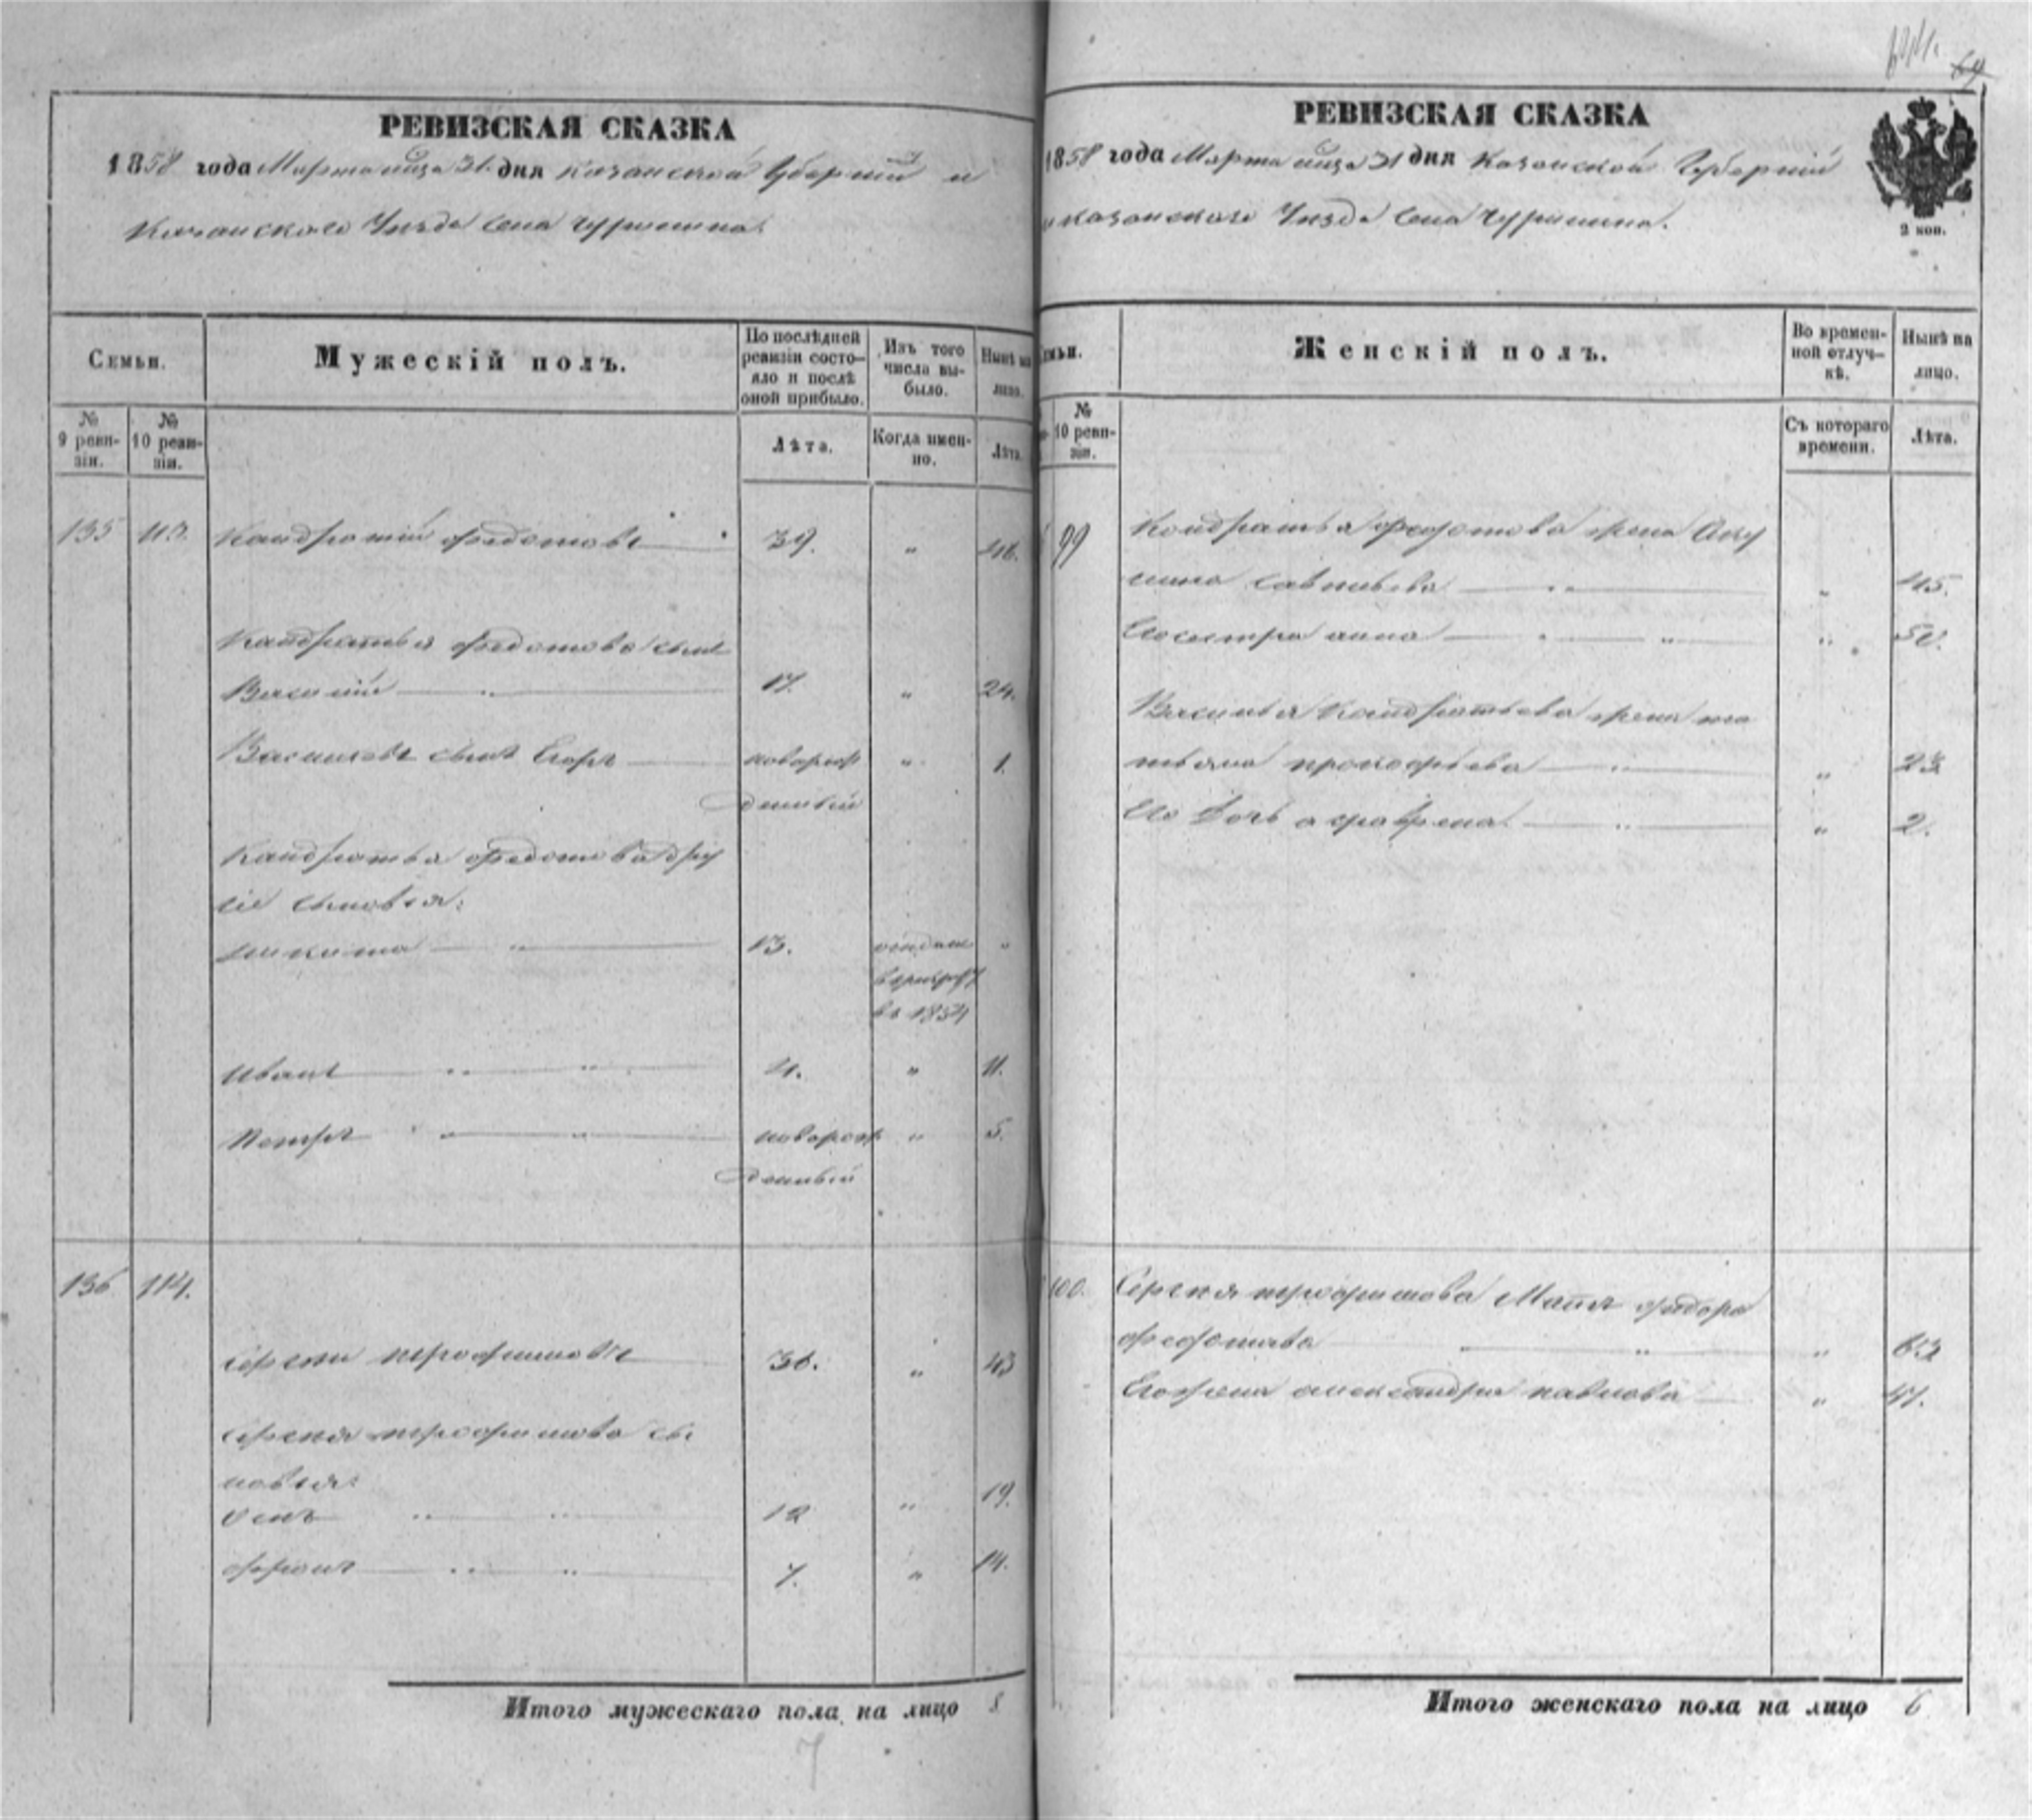 РЕВИЗСКАЯ СКАЗКА
1858 года Марта 31 дня Казанской Губерніи и
Казанского Уезда Села
Семьи.
Мужескій полъ.
По послѣдней
ревизіи состо-
яло и послѣ
оной прибыло.
Изъ того
числа вы-
было.
Нынѣ на
лицо.
№
9 реви-
зіи.
№
10 реви-
зіи.
Лѣта.
Когда имен-
но.
Лѣта.
135 113. Кандратій Федотовъ 39. " 46.
Кандратья Федотова сынъ
Василій " 17. " 24.
Васильевъ сынъ Егоръ новорож " 1.
денный
Кандратья Федотова дру
гіе сыновья:
Никита " 13. отдан "
въ 1854
Иванъ " " 4. " 11.
Петръ " " новорож " 5.
денный
136 114.
Сергей 36. " 43
Сергея сы
новья:
" " 12 " 19.
" " 7. " 14.
Итого мужескаго пола на лицо 8
7
64
РЕВИЗСКАЯ СКАЗКА
1858 года Марта 31 дня Казанской Губерніи
и Казанского Уезда Села
2 коп.
Женскій полъ.
Во времен-
ной отлуч-
кѣ.
Нынѣ на
лицо.
№
10 реви-
зіи.
Съ котораго
времени.
Лѣта.
99 Кондратья Федотова жена Аку
лина " " 45.
Его сестра анна " " " 50.
Василья Кандратьева жена та
тьяна прокофьева " " 23
Его дочь аграфена " " 2.
100. Сергея
" " " 63
Его жена александра павлова " 41.
Итого женскаго пола на лицо 6